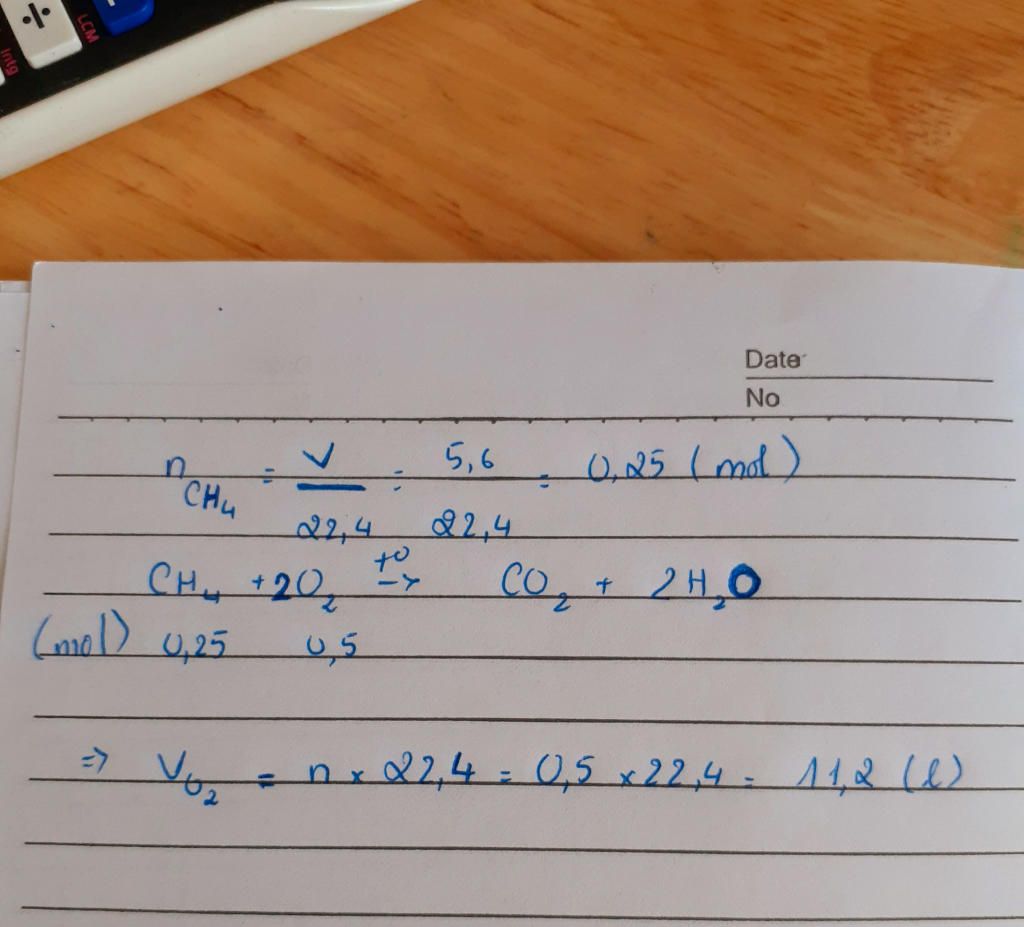 ÷
LCM
Intg
Date
No
n CH₄ = V / 22,4 = 5,6 / 22,4 = 0,25 (mol)
CH₄ + 2O₂ t° -> CO₂ + 2H₂O
(mol) 0,25 0,5
=> V O₂ = n x 22,4 = 0,5 x 22,4 = 11,2 (l)